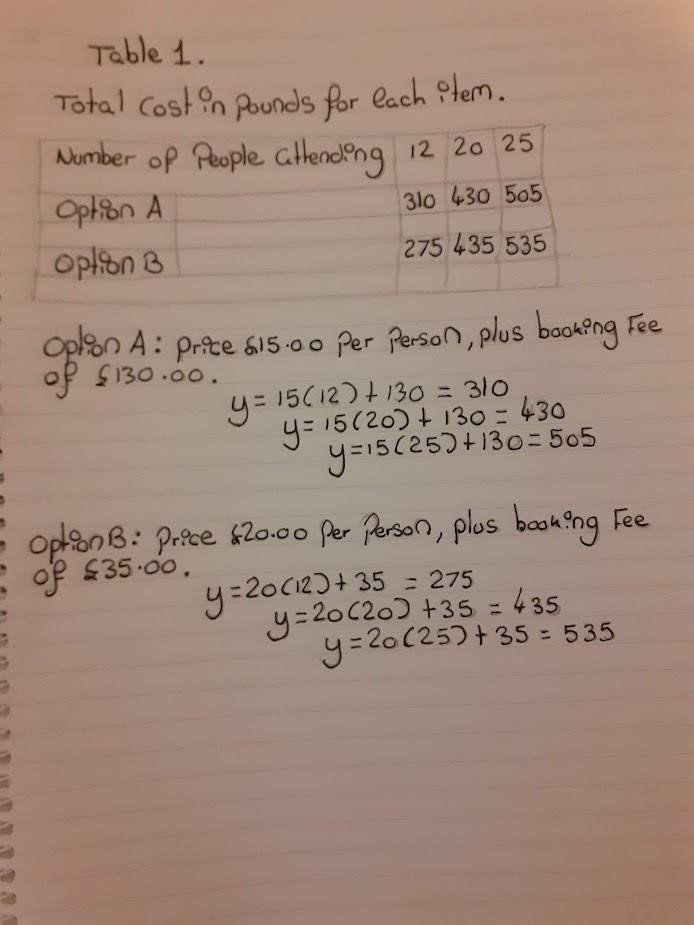 Table 1.
Total Cost in Pounds for each item.
Number of People attending 12 20 25
Option A 310 430 505
Option B 275 435 535
Option A: Price £15.00 Per Person, plus booking Fee
of £130.00.
y = 15(12) + 130 = 310
y = 15(20) + 130 = 430
y=15(25)+130=505
Option B: Price £20.00 Per Person, plus booking Fee
of £35.00.
y=20(12)+ 35 = 275
y=20(20) +35 = 435
y=20(25)+35 = 535